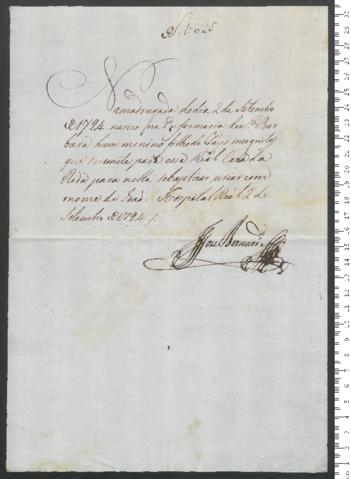 N.º 625
Na madrugada do dia 2 de Setembro
de 1794. nasceo na Enfermaria de S.ta Bar
bara hum menino filho de Pays incognitos
que se remete para essa Real Caza da
Roda para nella se baptizar, e criar com
nome de Hospital Real 2 de
Setembro de 1794.
Joze Bernardo